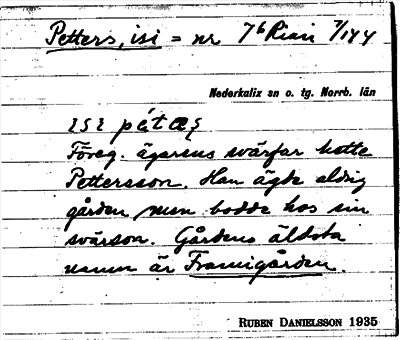 Petters, isi = nr 7⁶ Risön 7/144
Nederkalix sn o. tg. Norrb. län
Föreg. ägarens svärfar hette
Pettersson. Han ägde aldrig
gården men bodde hos sin
svärson. Gårdens äldsta
namn är Framigården.
RUBEN DANIELSSON 1935